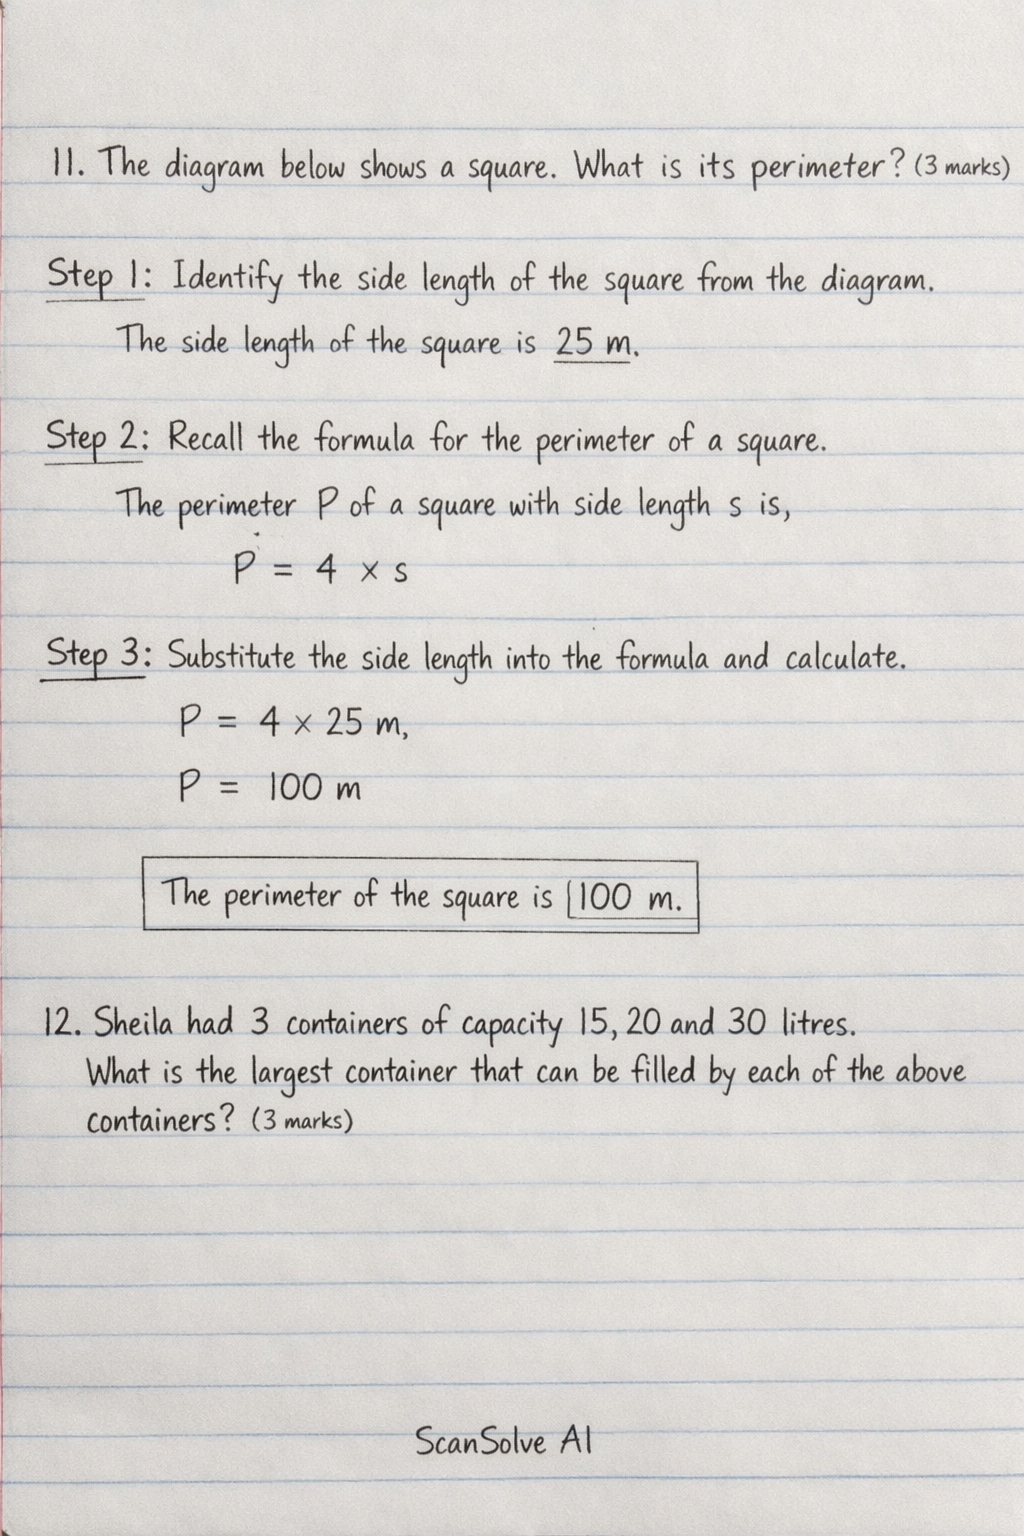 11. The diagram below shows a square. What is its perimeter? (3 marks)
Step 1: Identify the side length of the square from the diagram.
The side length of the square is 25 m.
Step 2: Recall the formula for the perimeter of a square.
The perimeter P of a square with side length s is,
P = 4 × s
Step 3: Substitute the side length into the formula and calculate.
P = 4 × 25 m,
P = 100 m
The perimeter of the square is 100 m.
12. Sheila had 3 containers of capacity 15, 20 and 30 litres.
What is the largest container that can be filled by each of the above
containers? (3 marks)
ScanSolve AI